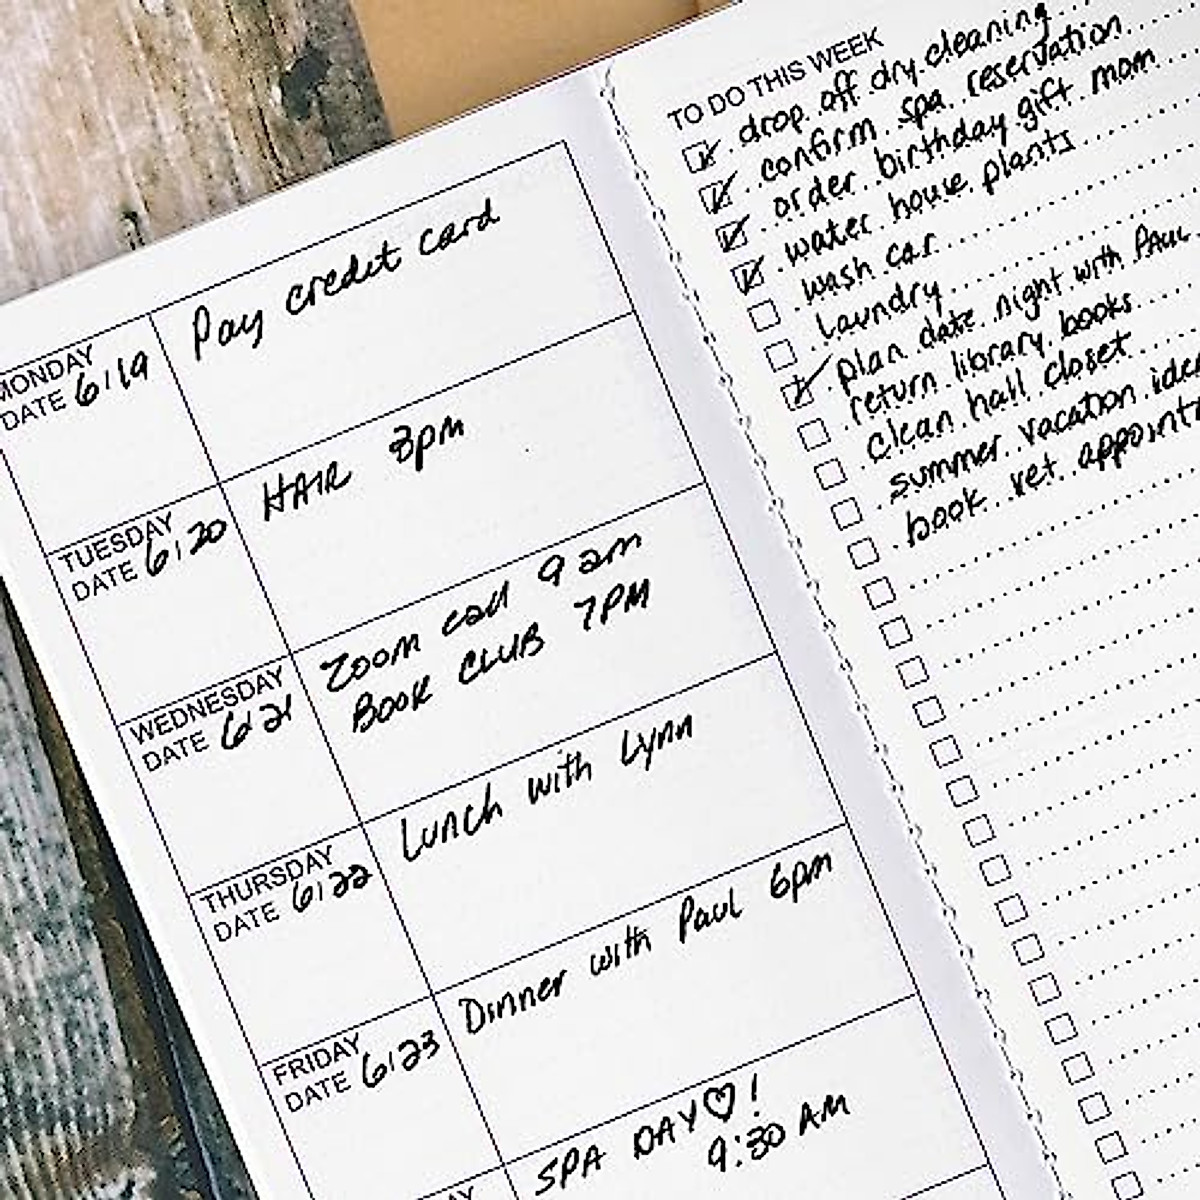 MONDAY
DATE 6/19
Pay credit card
TUESDAY
DATE 6/20
HAIR 3pm
WEDNESDAY
DATE 6/21
Zoom call 9am
BOOK CLUB 7PM
THURSDAY
DATE 6/22
Lunch with Lynn
FRIDAY
DATE 6/23
Dinner with Paul 6pm
SPA DAY♡!
9:30 AM
TO DO THIS WEEK
drop off dry cleaning
confirm spa reservation
order birthday gift mom
water house plants
wash car
laundry
plan date night with PAUL
return library books
clean hall closet
summer vacation
book vet